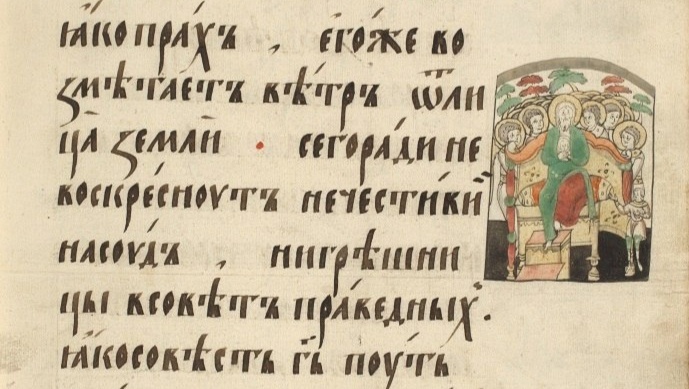 ꙗ҆́ко пра́хъ , е҆го́же во
змѣта́етъ вѣ́тръ ѿли
ца̀ землѝ . сегора́ди не
воскре́сноутъ нечести́вїи
насоу́дъ , нигрѣ́шни
цы всовѣ́тъ пра́ведныхъ .
ꙗ҆́косовѣ́сть гь҃ поу́ть